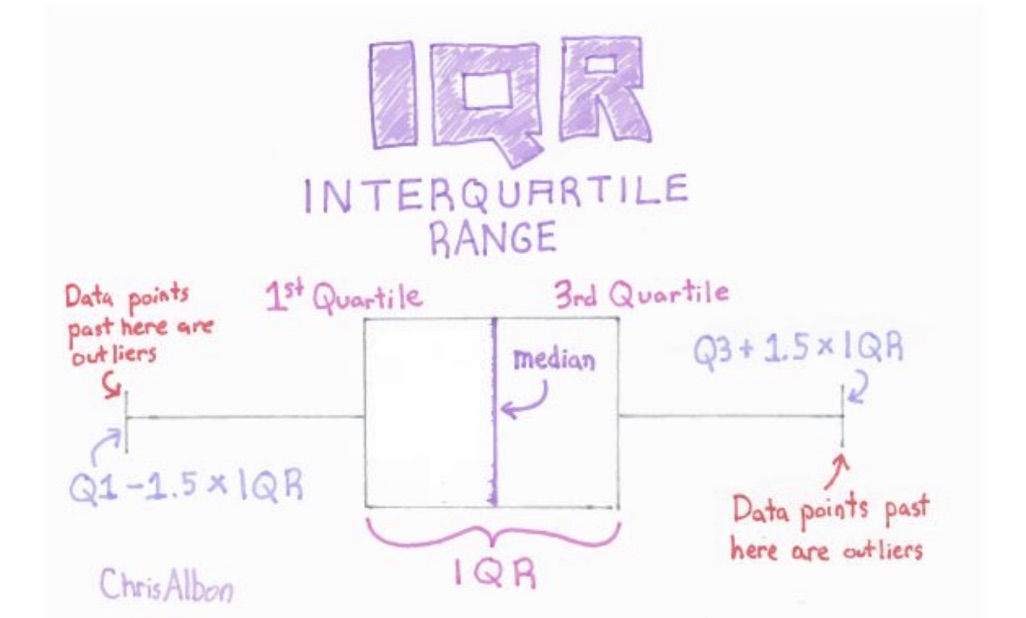 IQR
INTERQUARTILE
RANGE
Data points
past here are
outliers
1st Quartile
3rd Quartile
median
Q3 + 1.5 x IQR
Q1 - 1.5 x IQR
Data points past
here are outliers
IQR
Chris Albon